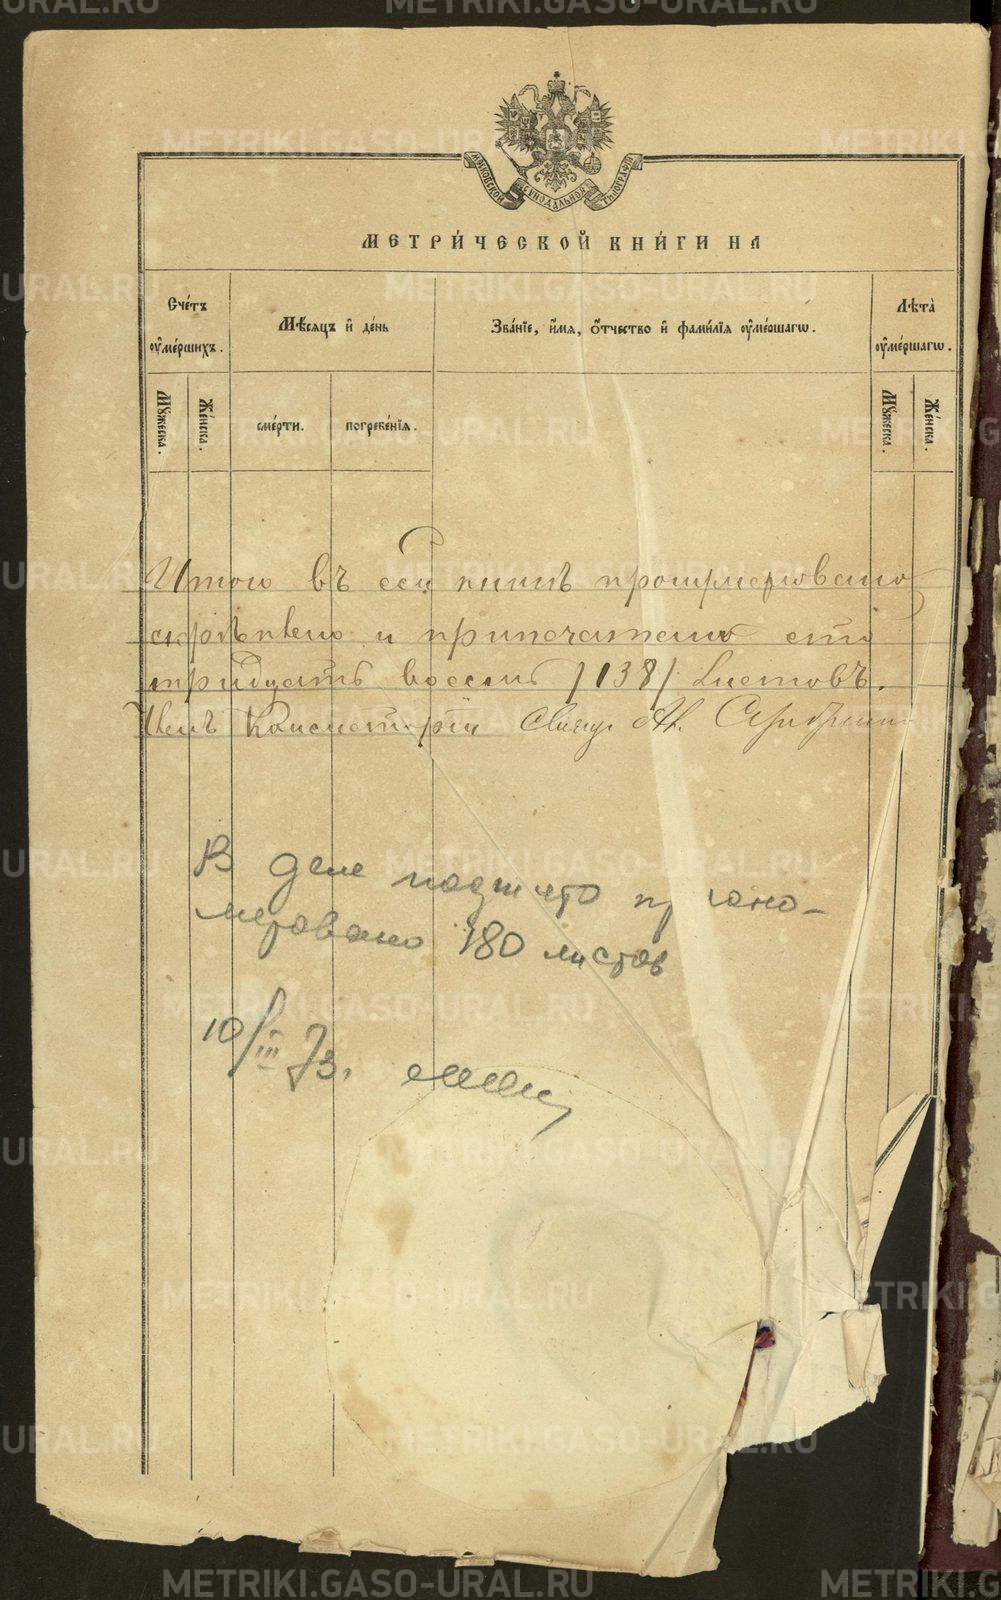 МОСКОВСКОЙ СѴНОДАЛЬНОЙ ТИПОГРАФІИ
МЕТРИ́ЧЕСКОЙ КНИ́ГИ НА
Сче́тъ оу҆ме́ршихъ.
Мѣ́сяцъ и҆ де́нь
Зва́нїе, и҆́мя, ѻ҆́тчество и҆ фами́лїя оу҆ме́ршагѡ.
Лѣ́та оу҆ме́ршагѡ.
Мꙋ́жеска.
Же́нска.
сме́рти.
погребе́нїя.
Мꙋ́жеска.
Же́нска.
Итого въ сей книгѣ прошнуровано
скрѣплено и припечатано сто
тридцать восемь /138/ листовъ.
Членъ Консисторіи Свящ. Ал.
В деле подшито прону-
меровано 180 листов
10/III 73.
METRIKI.GASO-URAL.RU